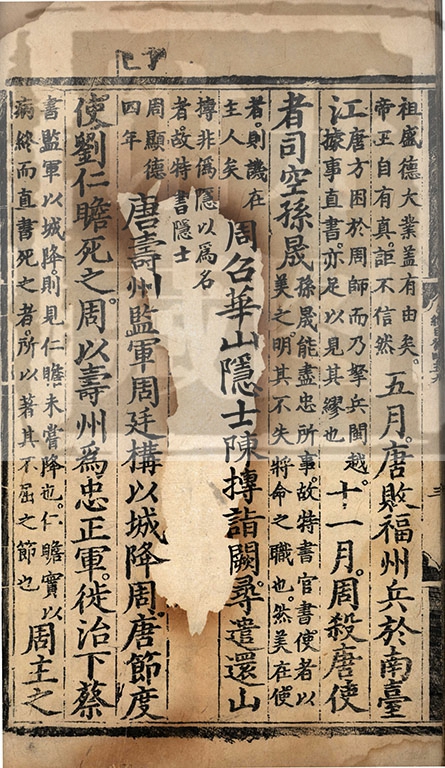 祖盛德大業蓋有由矣。
帝王自有真。詎不信然
五月。唐敗福州兵於南臺
江
唐方困於周師而乃挐兵閩越。
據事直書。亦足以見其繆也
十一月。周殺唐使
者司空孫晟
孫晟能盡忠所事。故特書官書使者以
美之明其不失將命之職也。然美在使
者。則譏在
主人矣
周召華山隱士陳摶詣闕。尋遣還山
摶非僞隱以爲名
者。故特書隱士
周顯德
四年
唐壽州監軍周廷構以城降周。唐節度
使劉仁瞻死之。周以壽州為忠正軍。徙治下蔡
書監軍以城降。則見仁瞻未嘗降也。仁瞻實以
病終而直書死之者。所以著其不屈之節也
周主之